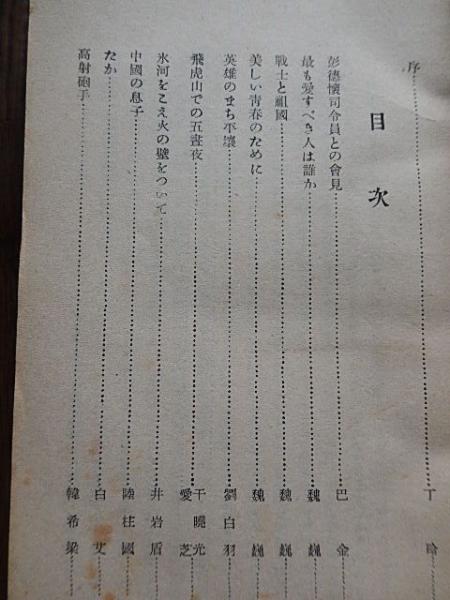 序……丁玲
目次
彭德懷司令員との會見……巴金
最も愛すべき人は誰か……魏巍
戰士と祖國……魏巍
美しい青春のために……魏巍
英雄のまち平壤……劉白羽
飛虎山での五晝夜……于曉光 愛芝
氷河をこえ火の壁をついて……井岩盾
中國の息子……陸柱國
たか……白艾
高射砲手……韓希梁